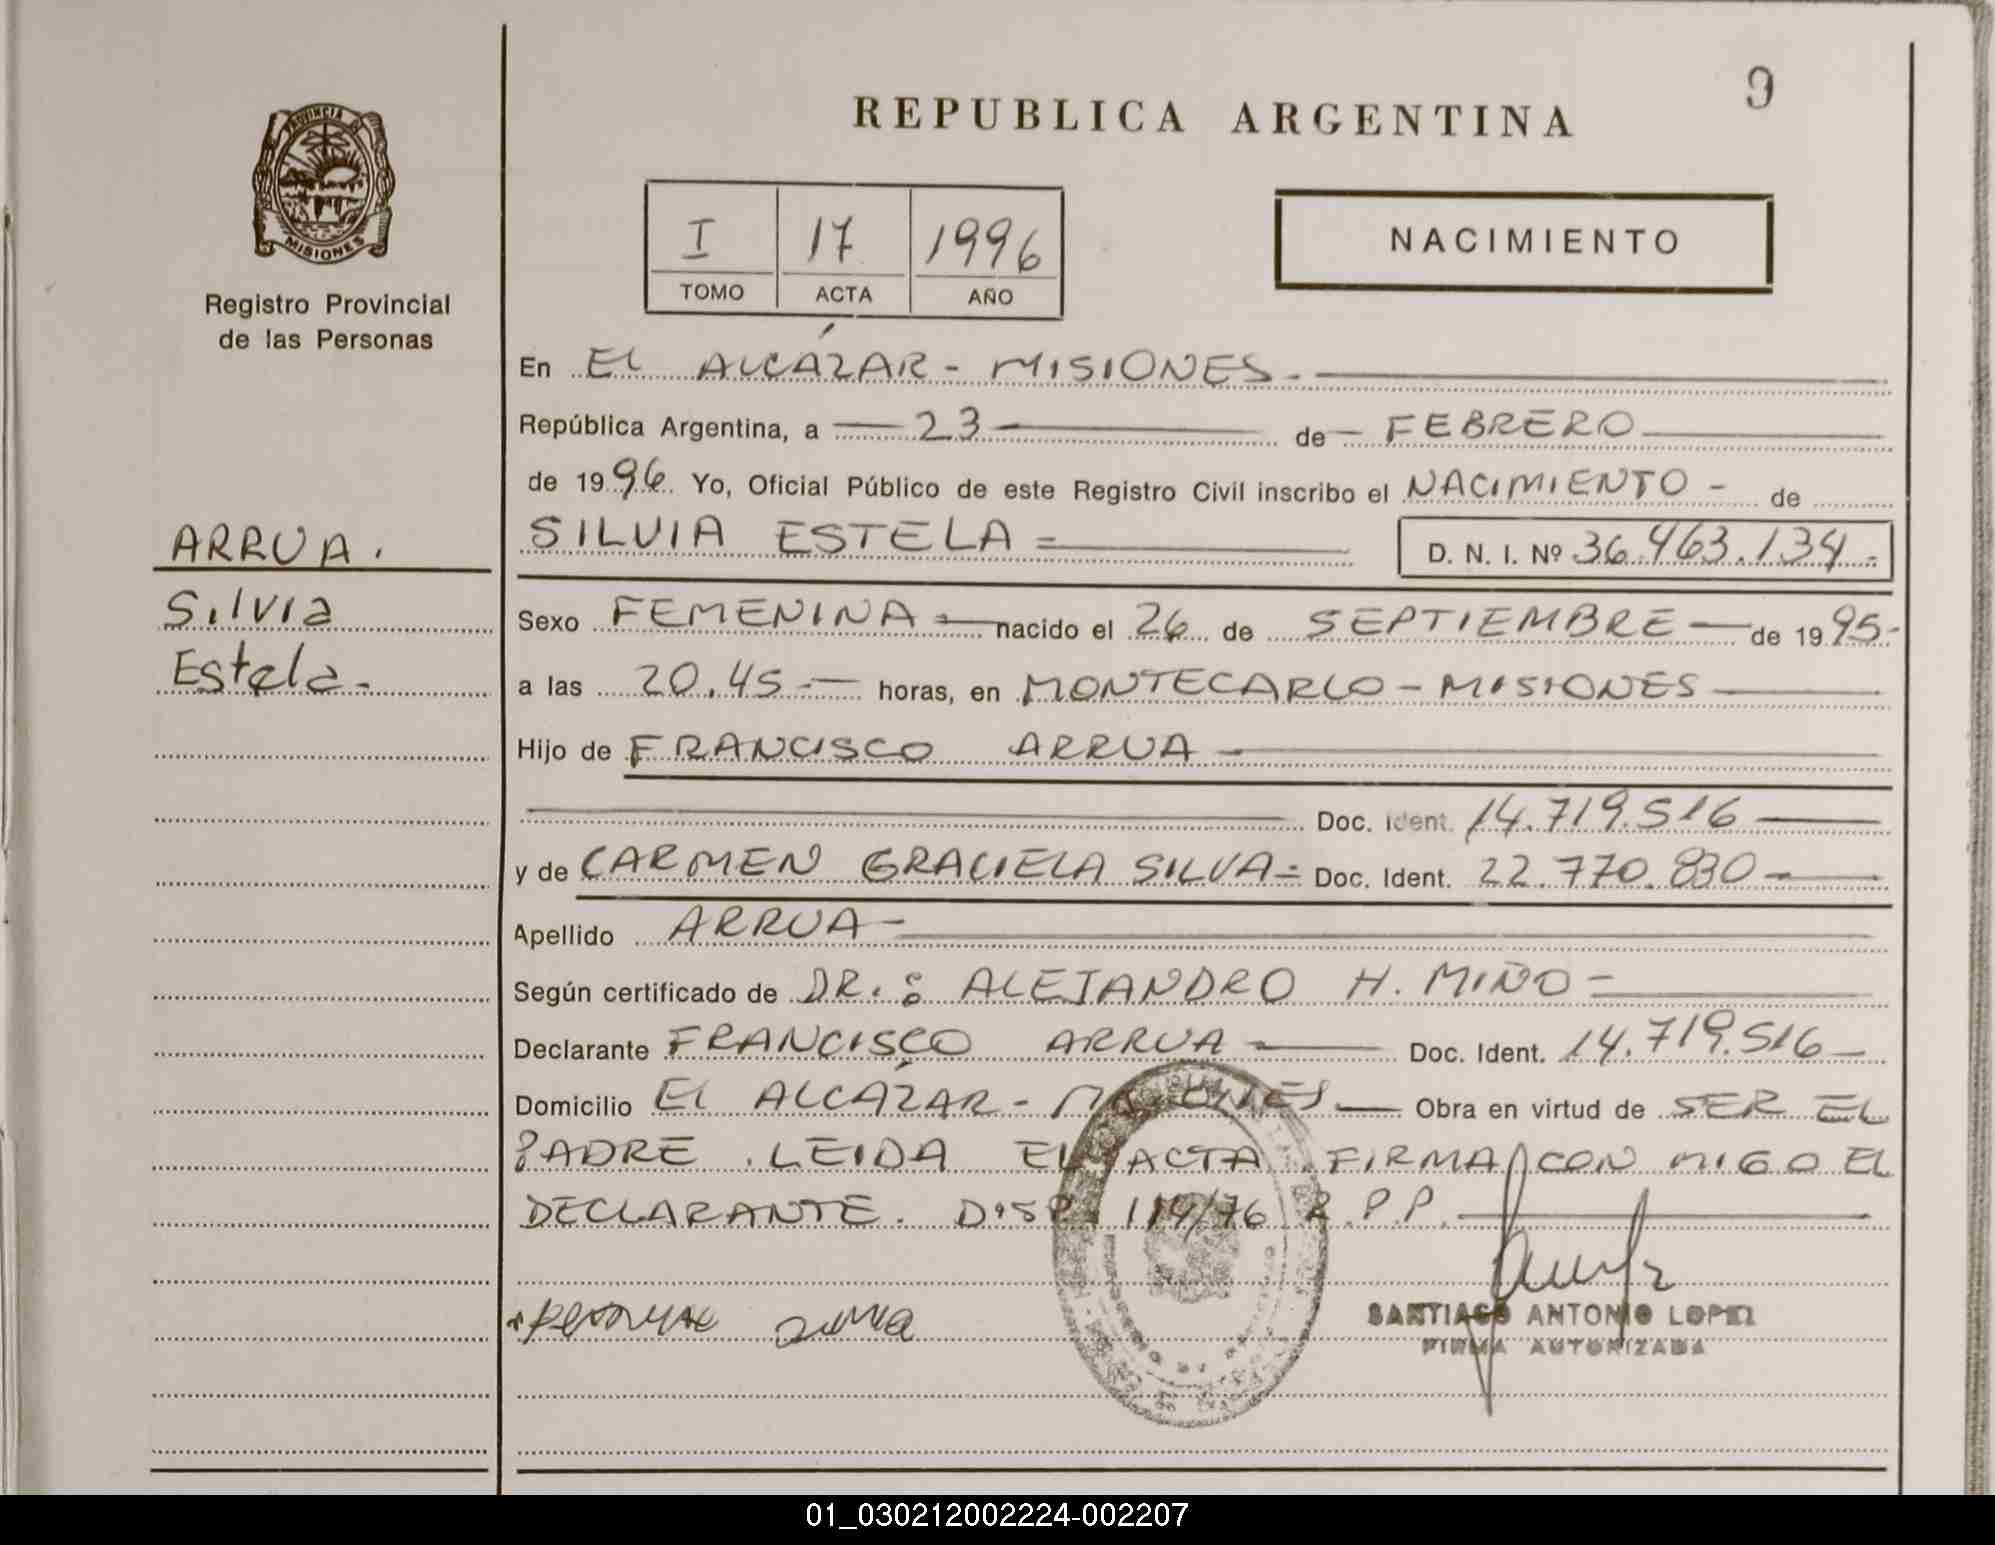 PROVINCIA DE
MISIONES
Registro Provincial
de las Personas
ARRUA.
Silvia
Estela.
9
REPUBLICA ARGENTINA
I 17 1996
TOMO ACTA AÑO
NACIMIENTO
En EL ALCÁZAR - MISIONES.
República Argentina, a 23 de FEBRERO
de 1996. Yo, Oficial Público de este Registro Civil inscribo el NACIMIENTO - de
SILVIA ESTELA = D. N. I. Nº 36.463.134.-
Sexo FEMENINA nacido el 26 de SEPTIEMBRE de 1995-
a las 20.45 horas, en MONTECARLO - MISIONES
Hijo de FRANCISCO ARRUA
Doc. Ident. 14.719.516
y de CARMEN GRACIELA SILVA = Doc. Ident. 22.770.830
Apellido ARRUA
Según certificado de DR.: ALEJANDRO H. MIÑO
Declarante FRANCISCO ARRUA Doc. Ident. 14.719.516
Domicilio EL ALCÁZAR - MISIONES Obra en virtud de SER EL
PADRE. LEIDA EL ACTA FIRMA CON MIGO EL
DECLARANTE. DISP. 114/76 R.P.P.
SANTIAGO ANTONIO LOPEZ
FIRMA AUTORIZADA
01_030212002224-002207